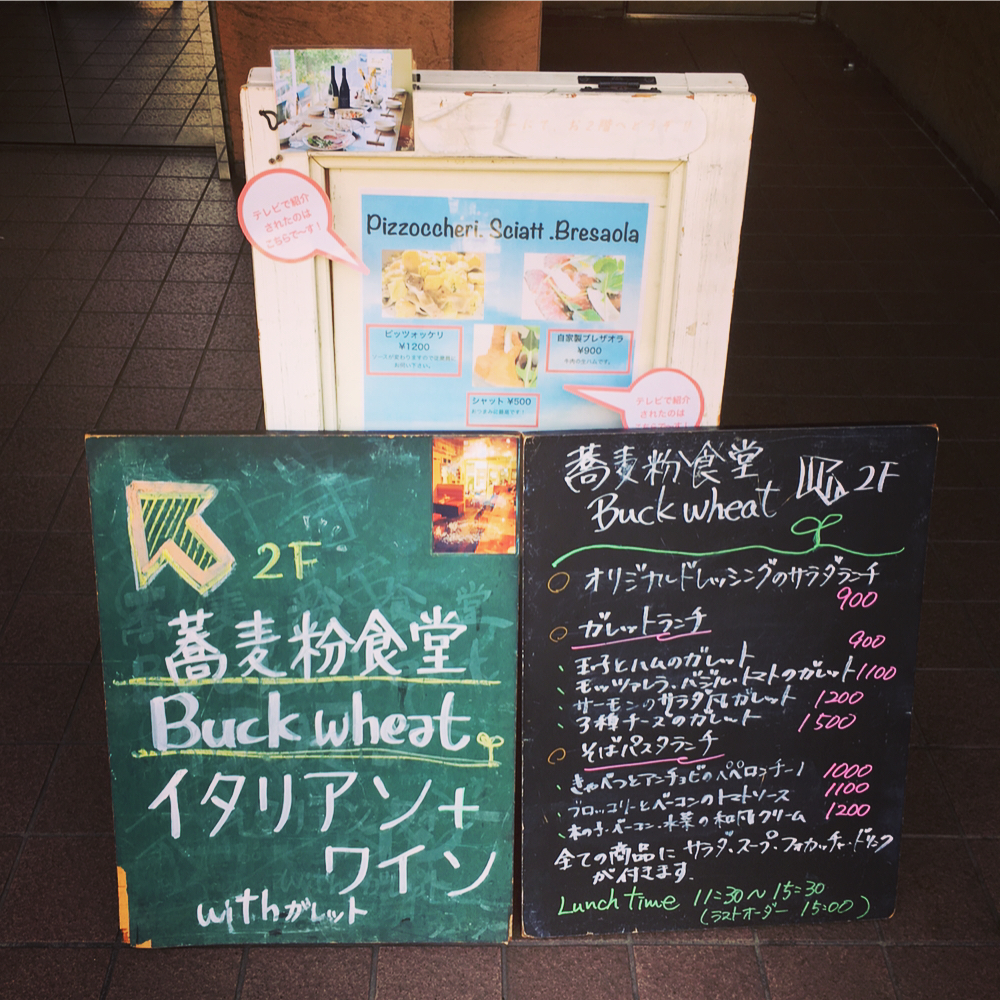 テレビで紹介
されたのは
こちらで〜す！
Pizzoccheri. Sciatt .Bresaola
ピッツォッケリ
¥1200
ソースが変わりますので従業員に
お問い下さい。
自家製ブレザオラ
¥900
牛肉の生ハムです。
シャット ¥500
おつまみに最適です！
テレビで紹介
されたのは
こちらで〜す！
2F
蕎麦粉食堂
Buck wheat
イタリアン+
ワイン
withガレット
蕎麦粉食堂
Buck wheat 2F
オリジナルドレッシングのサラダランチ
900
ガレットランチ
900
玉子とハムのガレット
モッツァレラ・バジル・トマトのガレット 1100
サーモンのサラダ風ガレット 1200
3種チーズのガレット 1500
そばパスタランチ
きゃべつとアンチョビのペペロンチーノ 1000
ブロッコリーとベーコンのトマトソース 1100
木の子・ベーコン・水菜の和風クリーム 1200
全ての商品に サラダ、スープ、フォカッチャ・ドリンク
が付きます。
Lunch time 11:30〜15:30
(ラストオーダー 15:00)